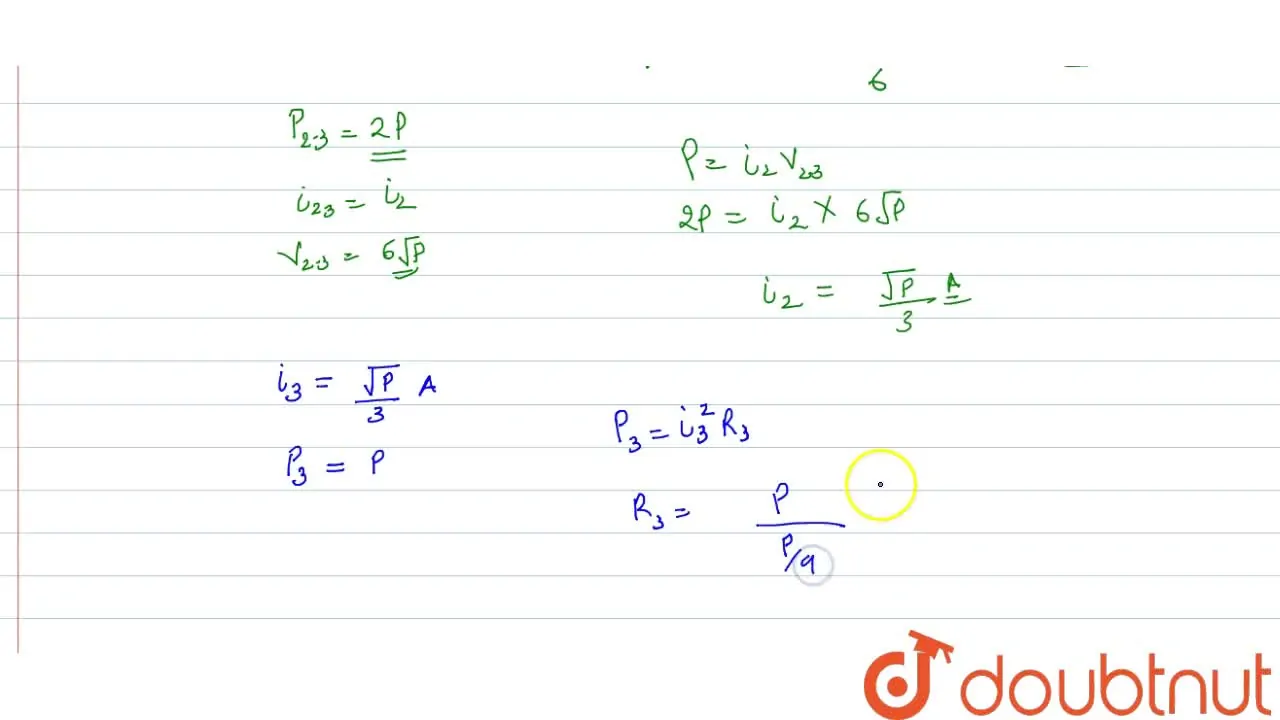 6
P₂₋₃ = 2P
i₂₃ = i₂
V₂₋₃ = 6√P
P = i₂ V₂₃
2P = i₂ × 6√P
i₂ = √P/3 A
i₃ = √P/3 A
P₃ = P
P₃ = i₃² R₃
R₃ = P/(P/9)
doubtnut